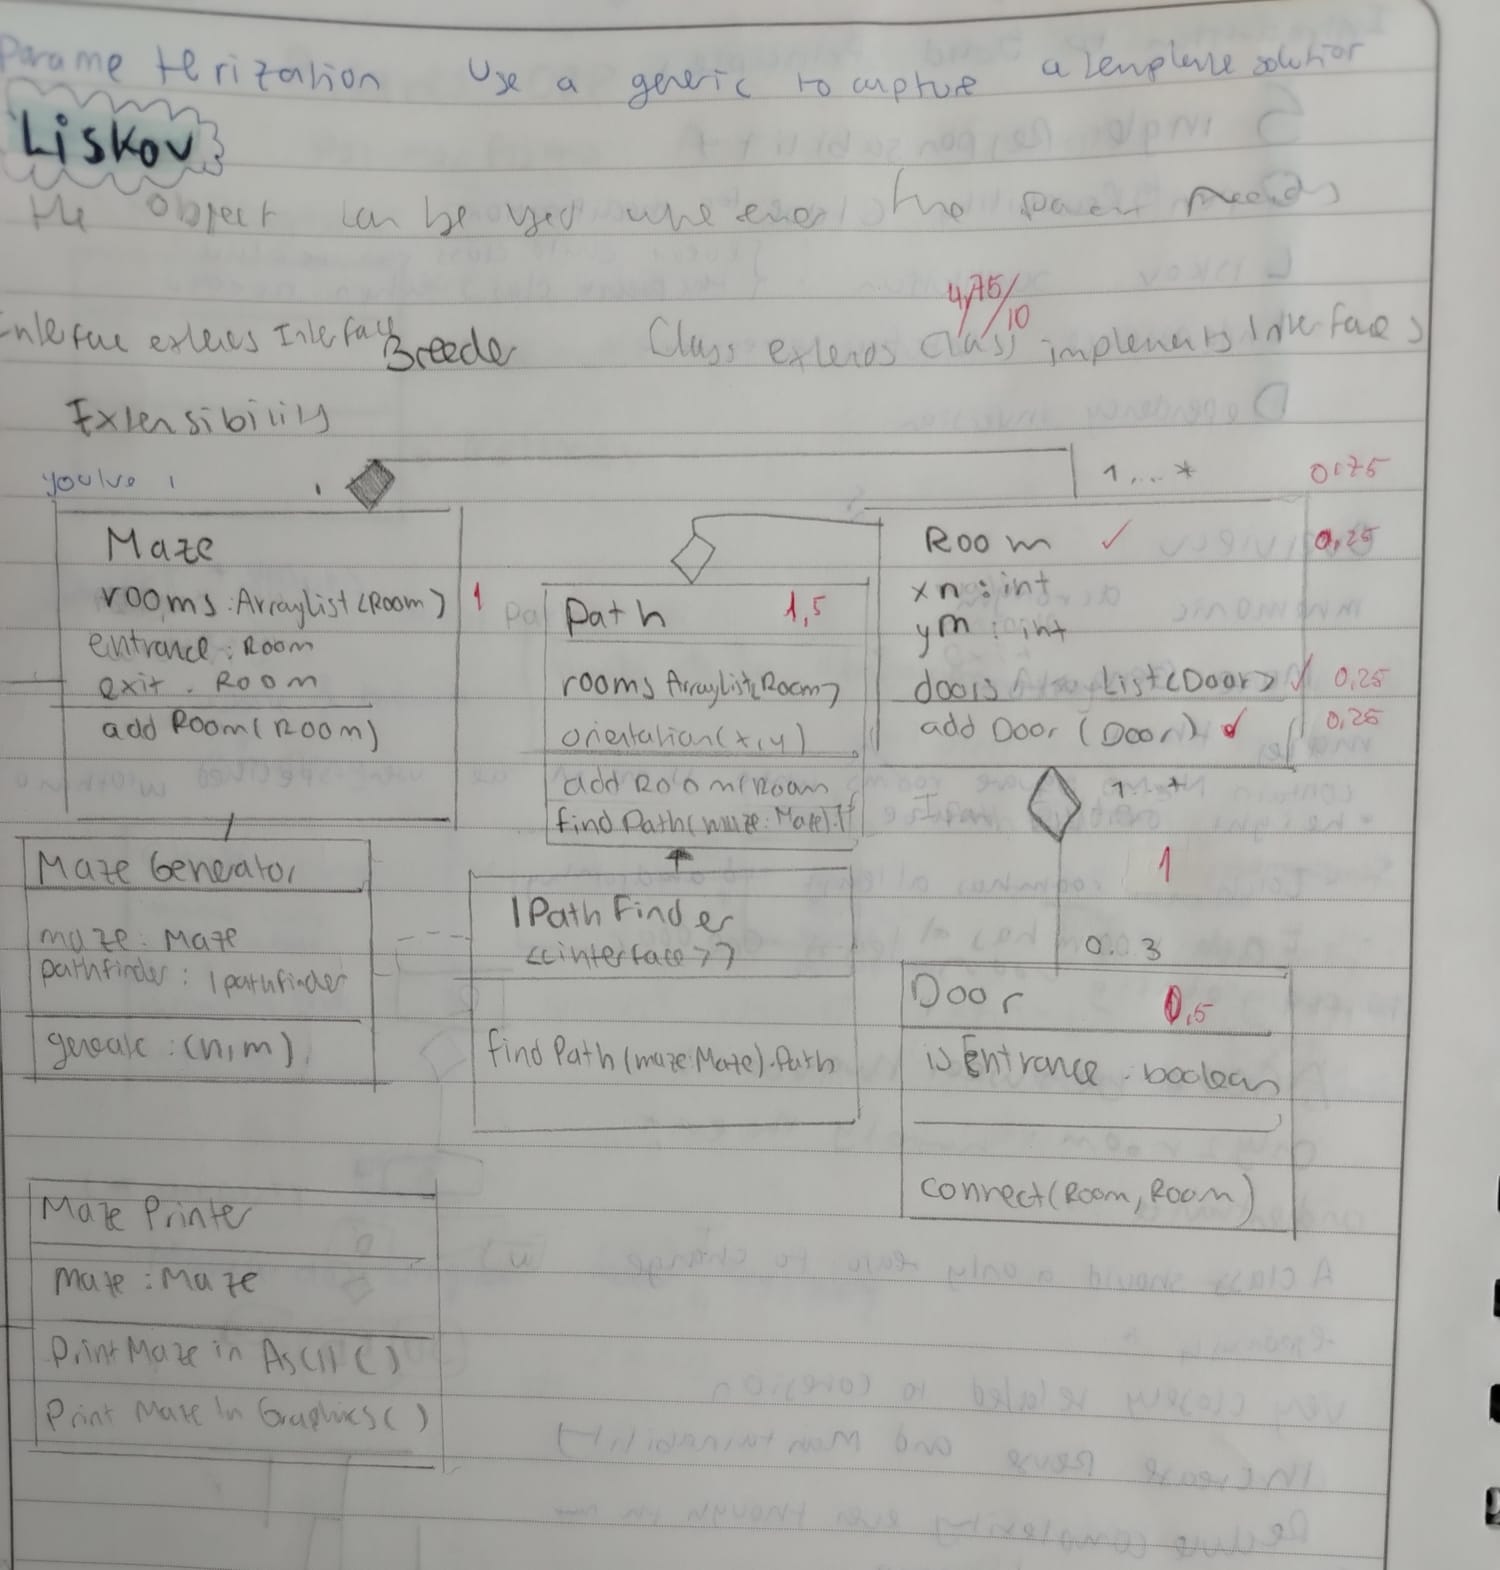 Parameterization Use a generic to capture a template solution
Liskov
the object can be used whenever the parent needs
4,75/10
Interface extends Interface Breeder Class extends class implements Interfaces
Extensibility
you've
1...* 0,75
Maze
rooms: ArrayList<Room> 1
entrance: Room
exit. Room
add Room(Room)
Path 1,5
rooms ArrayList<Room>
orientation(x,y)
add Room(Room
find Path(maze: Maze)
Room ✓ 0,25
xn: int
ym: int
doors List<Door> ✓ 0,25
add Door (Door) ✓ 0,25
1 *
1
Maze Generator
maze: Maze
pathfinder: Ipathfinder
generate: (n,m)
IPath Finder
<<interface>>
find Path(maze:Maze).Path
0.3
Door 0,5
is Entrance. boolean
connect(Room, Room)
Maze Printer
Maze: Maze
Print Maze in ASCII()
Print Maze In Graphics()